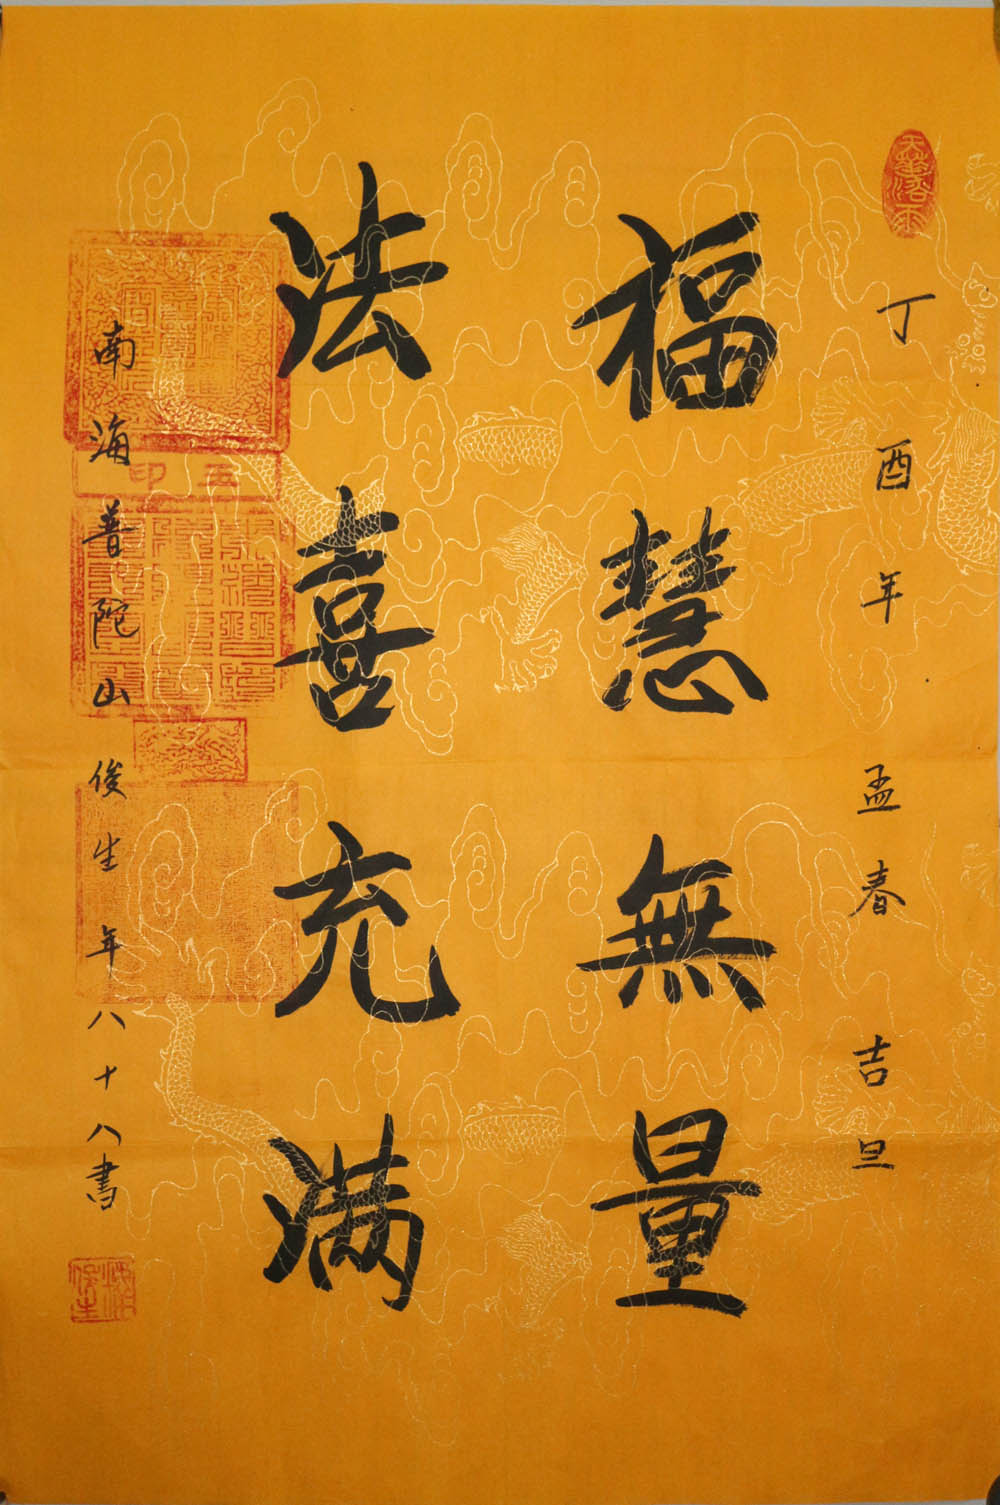 丁酉年孟春吉旦
福慧無量
法喜充满
南海普陀山俊生年八十八書